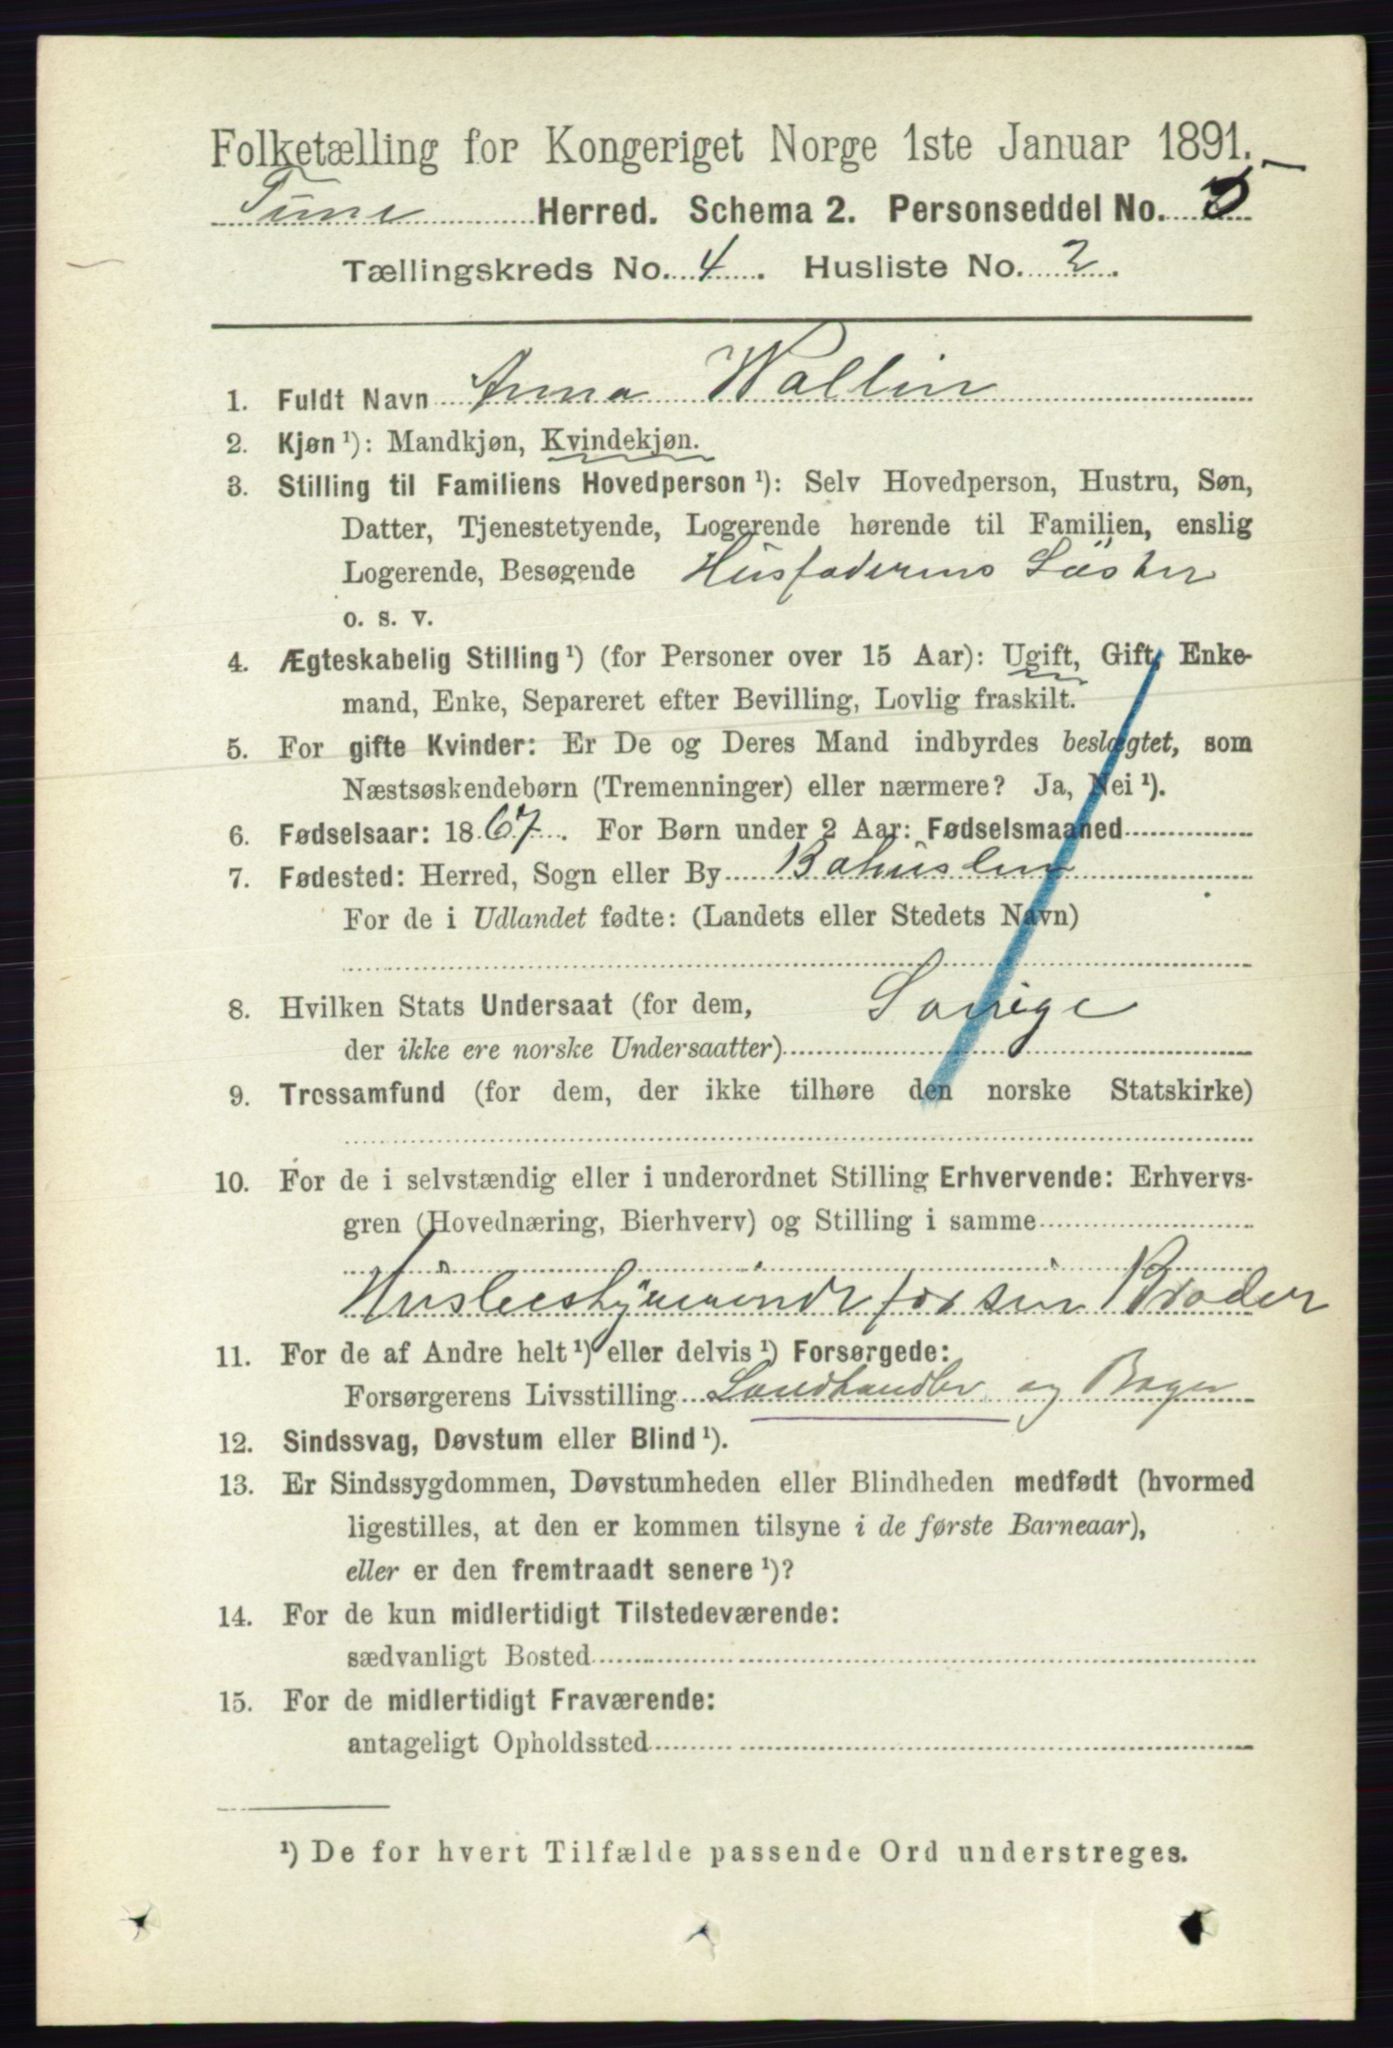 Folketælling for Kongeriget Norge 1ste Januar 1891.
Tune Herred. Schema 2. Personseddel No. 5
Tællingskreds No. 4. Husliste No. 2.
1. Fuldt Navn Anna Wallin
2. Kjøn ¹): Mandkjøn, Kvindekjøn.
3. Stilling til Familiens Hovedperson ¹): Selv Hovedperson, Hustru, Søn,
Datter, Tjenestetyende, Logerende hørende til Familien, enslig
Logerende, Besøgende Husfaderens Söster
o. s. v.
4. Ægteskabelig Stilling ¹) (for Personer over 15 Aar): Ugift, Gift, Enke-
mand, Enke, Separeret efter Bevilling, Lovlig fraskilt.
5. For gifte Kvinder: Er De og Deres Mand indbyrdes beslægtet, som
Næstsøskendebørn (Tremenninger) eller nærmere? Ja, Nei ¹).
6. Fødselsaar: 1867. For Børn under 2 Aar: Fødselsmaaned
7. Fødested: Herred, Sogn eller By Bahuslen
For de i Udlandet fødte: (Landets eller Stedets Navn)
8. Hvilken Stats Undersaat (for dem, Sverige
der ikke ere norske Undersaatter)
9. Trossamfund (for dem, der ikke tilhøre den norske Statskirke)
10. For de i selvstændig eller i underordnet Stilling Erhvervende: Erhvervs-
gren (Hovednæring, Bierhverv) og Stilling i samme
for sin Broder
11. For de af Andre helt ¹) eller delvis ¹) Forsørgede:
Forsørgerens Livsstilling Landhandler og Bager
12. Sindssvag, Døvstum eller Blind ¹).
13. Er Sindssygdommen, Døvstumheden eller Blindheden medfødt (hvormed
ligestilles, at den er kommen tilsyne i de første Barneaar),
eller er den fremtraadt senere ¹)?
14. For de kun midlertidigt Tilstedeværende:
sædvanligt Bosted
15. For de midlertidigt Fraværende:
antageligt Opholdssted
¹) De for hvert Tilfælde passende Ord understreges.